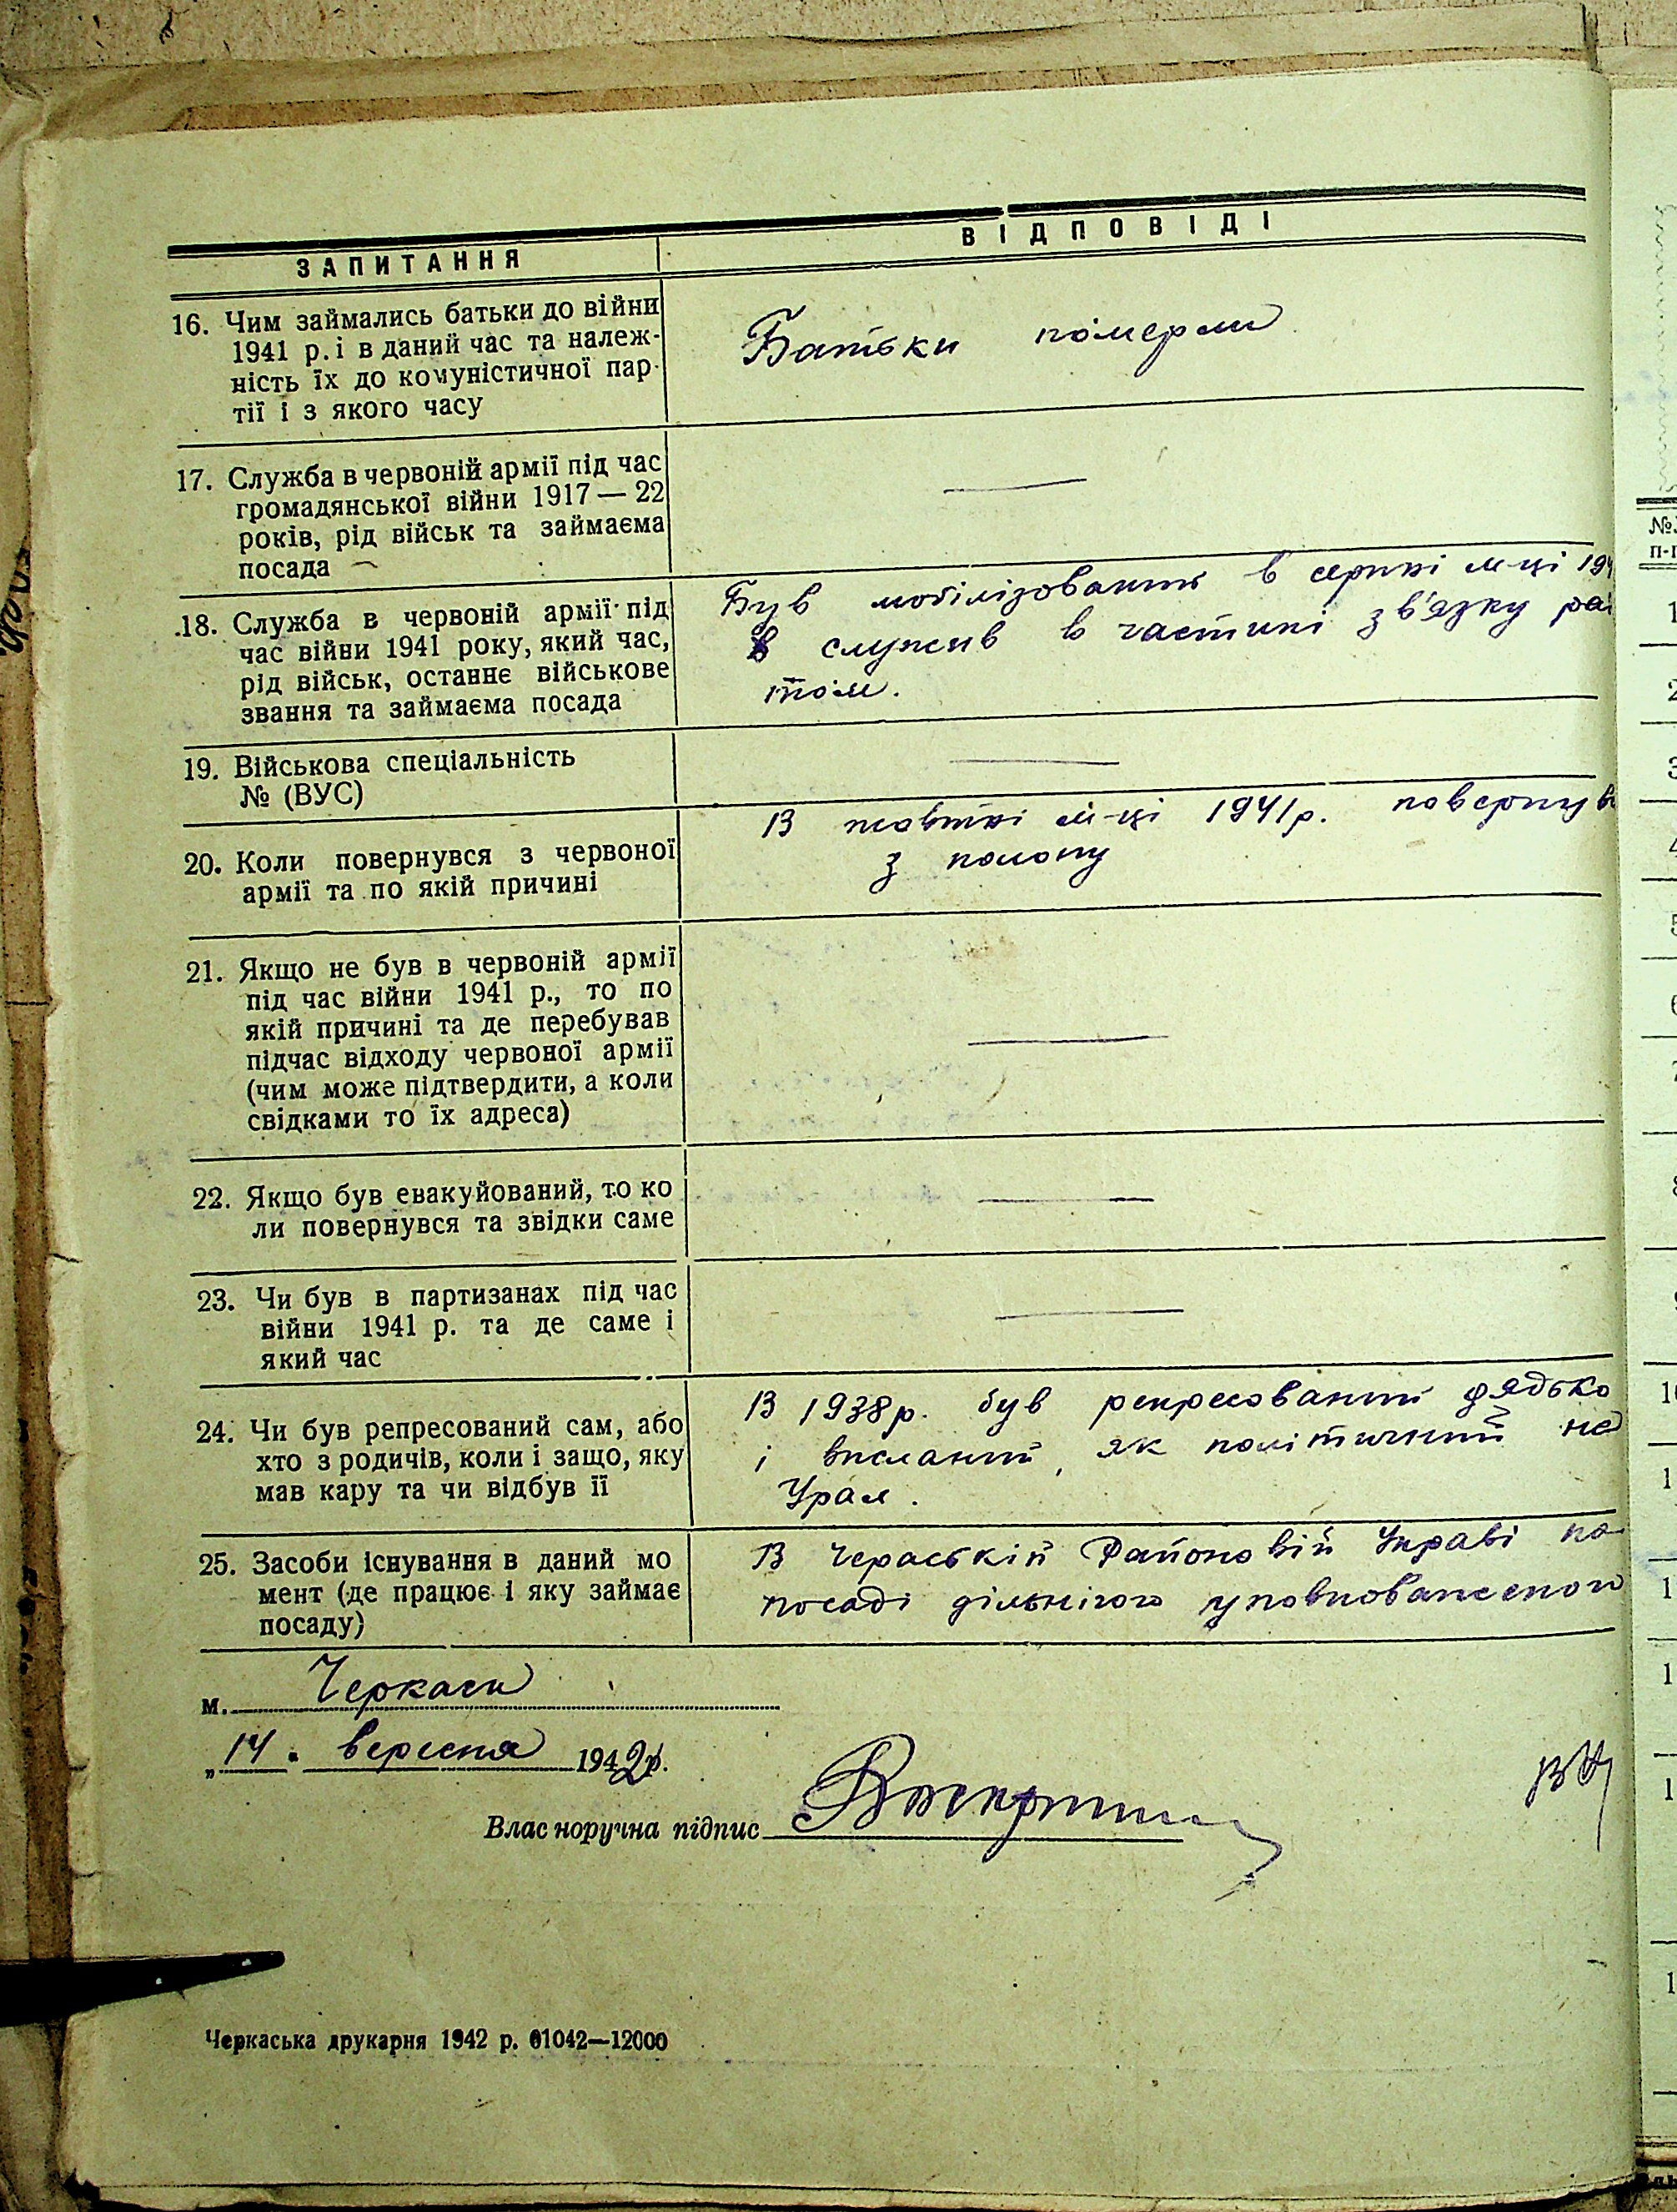 ЗАПИТАННЯ
ВІДПОВІДІ
16. Чим займались батьки до війни
1941 р. і в даний час та належ-
ність їх до комуністичної пар-
тії і з якого часу
Батьки померли
17. Служба в червоній армії під час
громадянської війни 1917 — 22
років, рід військ та займаєма
посада —
18. Служба в червоній армії під
час війни 1941 року, який час,
рід військ, останнє військове
звання та займаєма посада
Був мобілізований в серпні м-ці 194
служив в частині зв'язку
19. Військова спеціальність
№ (ВУС)
20. Коли повернувся з червоної
армії та по якій причині
В жовтні м-ці 1941 р. повернув
з полону
21. Якщо не був в червоній армії
під час війни 1941 р., то по
якій причині та де перебував
підчас відходу червоної армії
(чим може підтвердити, а коли
свідками то їх адреса)
22. Якщо був евакуйований, то ко
ли повернувся та звідки саме
23. Чи був в партизанах під час
війни 1941 р. та де саме і
який час
24. Чи був репресований сам, або
хто з родичів, коли і защо, яку
мав кару та чи відбув її
В 1938 р. був репресований дядько
і висланий, як політичний на
Урал.
25. Засоби існування в даний мо
мент (де працює і яку займає
посаду)
В Чераській Районовій Управі на
посаді дільнічого уповноваженого
м. Черкаси
„14" вересня 1942 р.
Власноручна підпис
Черкаська друкарня 1942 р. 01042—12000
№
п-п